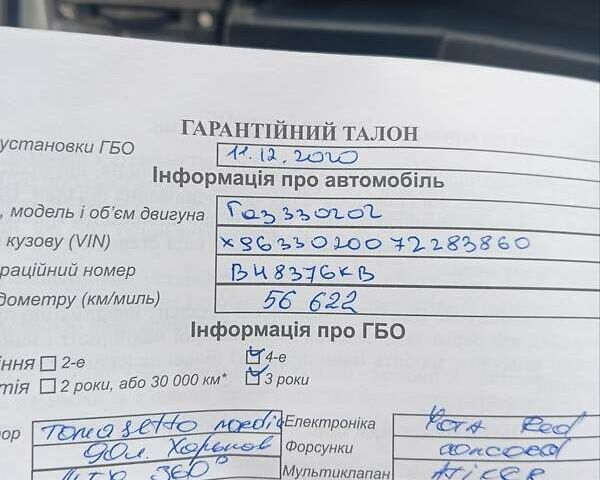 ГАРАНТІЙНИЙ ТАЛОН
установки ГБО 11.12.2020
Інформація про автомобіль
, модель і об'єм двигуна Газ 330202
кузову (VIN) х9633020072283860
раційний номер ВН8376КВ
дометру (км/миль) 56 622
Інформація про ГБО
ння 2-е 4-е
тія 2 роки, або 30 000 км* 3 роки
ор Tomasetto Електроніка
90л. Харьков Форсунки
360° Мультиклапан